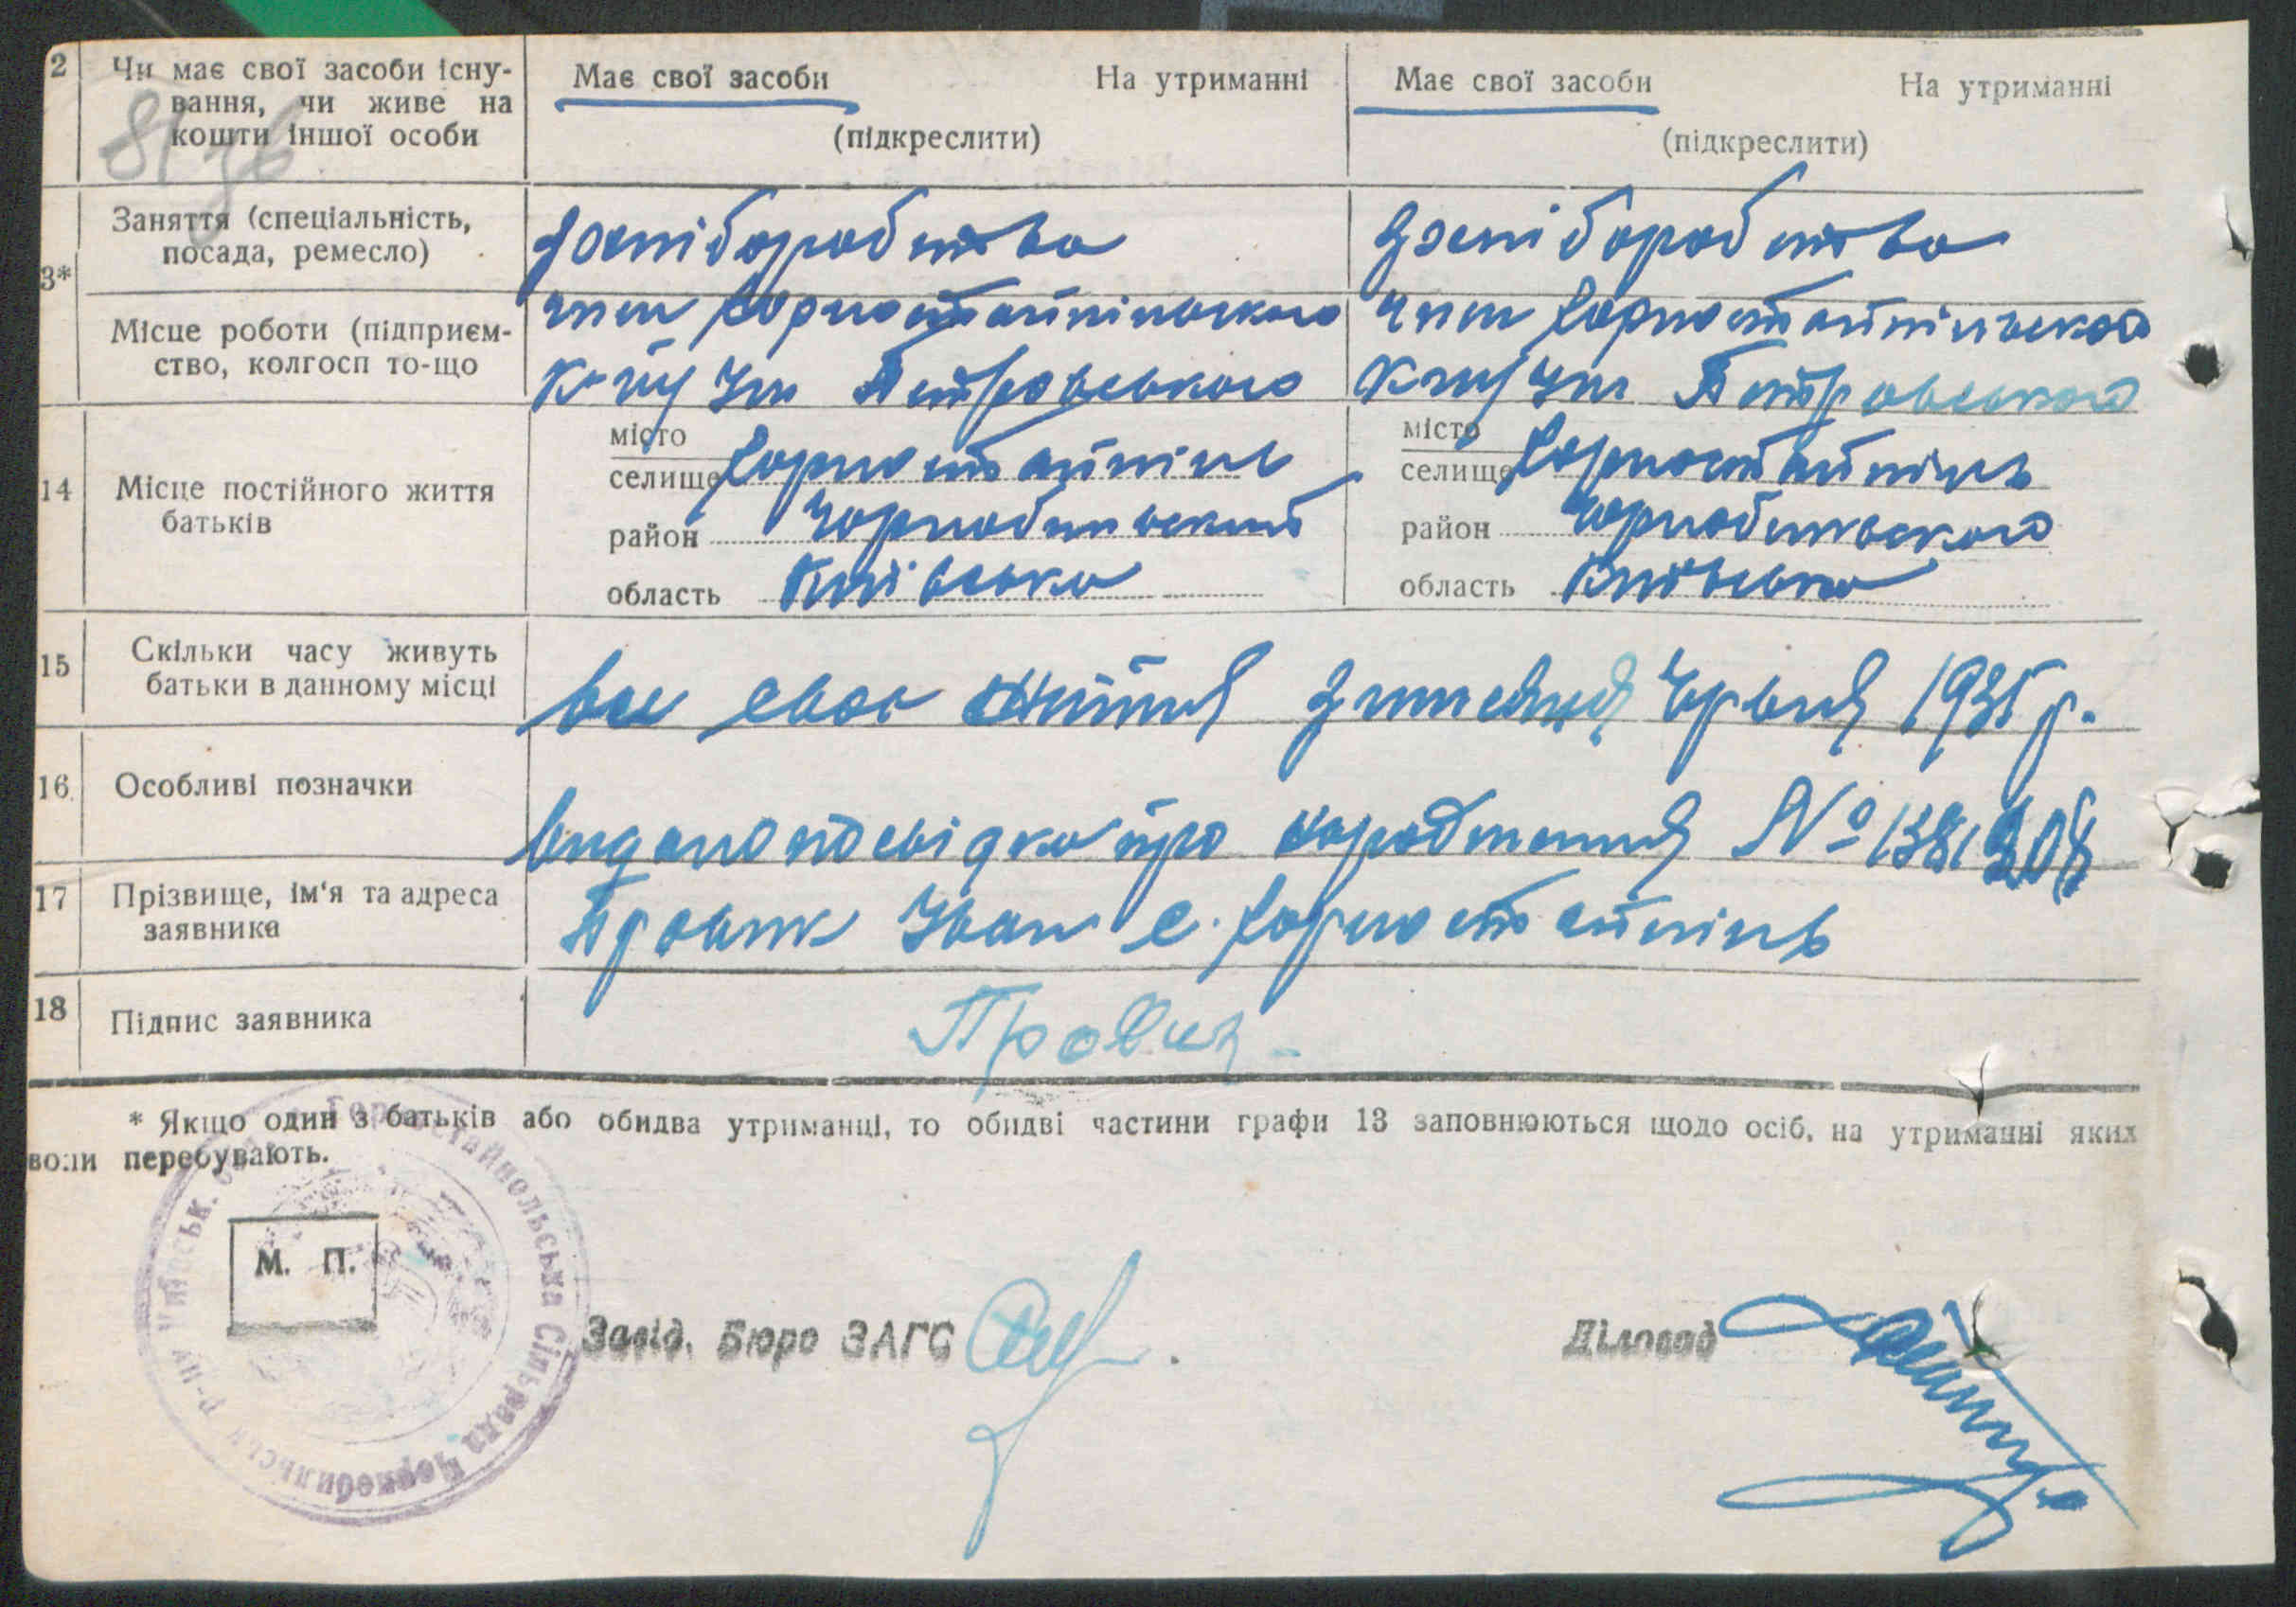 2 Чи має свої засоби існу-
вання, чи живе на
кошти іншої особи
Має свої засоби На утриманні
(підкреслити)
Має свої засоби На утриманні
(підкреслити)
3*
Заняття (спеціальність,
посада, ремесло)
хліборобство
хліборобство
Місце роботи (підприєм-
ство, колгосп то-що
член Горностайпільського
к-пу ім Петровського
член Горностайпільского
к-пу ім Петровського
14 Місце постійного життя
батьків
місто
селище Горностайпіль
район Чорнобильський
область Київська
місто
селище Горностайпіль
район Чорнобильского
область Київська
15 Скільки часу живуть
батьки в данному місці
все своє життя 1935 р.
16. Особливі позначки
видано посвідка про народження №
17 Прізвище, ім'я та адреса
заявника
Провик Іван с. Горностайпіль
18 Підпис заявника
Провик
* Якщо один з батьків або обидва утриманці, то обидві частини графи 13 заповнюються щодо осіб, на утриманні яких
вони перебувають.
Горностайпольська Сільрада Чорнобильськ р-ну Київськ.
М. П.
Завід. Бюро ЗАГС
Діловод